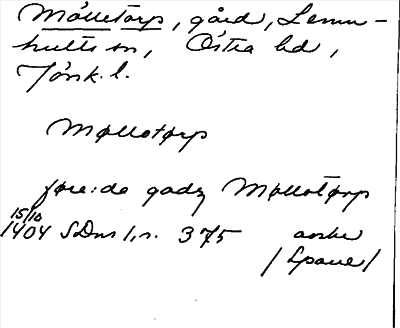 Målletorp, gård, Lemn-
hults sn, Östra hd,
Jönk. l.
Møllotørp
føre:de godz Møllotørp
15/10
1404 SDns 1, s. 375 avskr
/Spane/